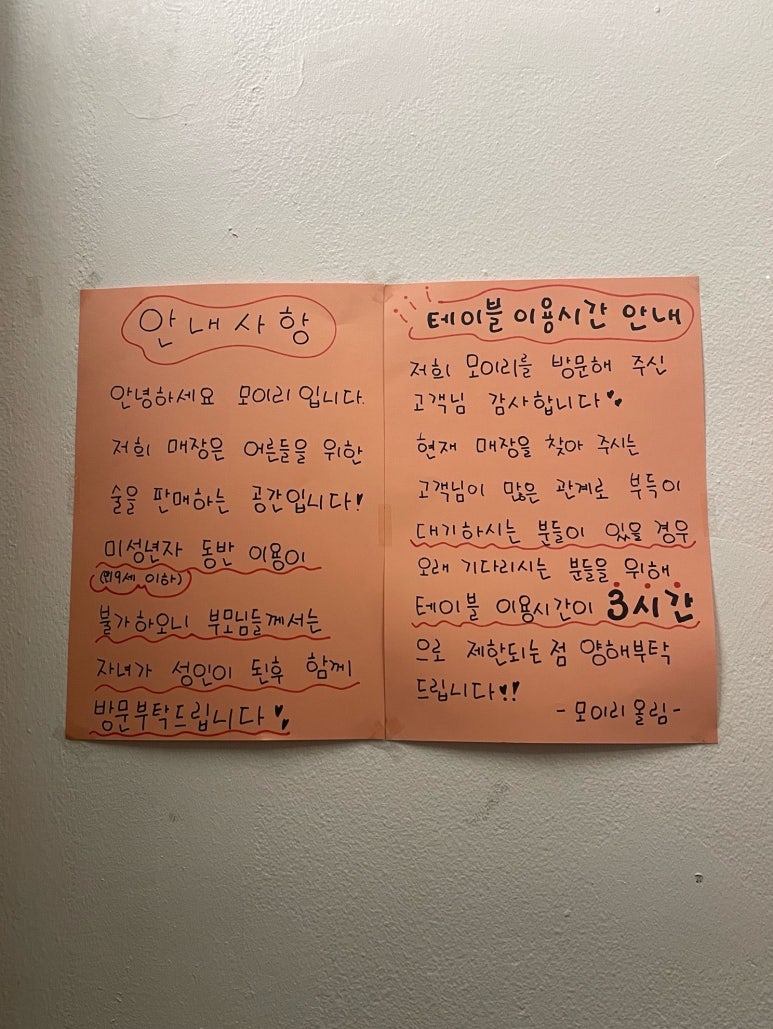 안내사항
안녕하세요 모이리입니다.
저희 매장은 어른들을 위한
술을 판매하는 공간입니다!
미성년자 동반 이용이
(만19세 이하)
불가하오니 부모님들께서는
자녀가 성인이 된후 함께
방문부탁드립니다
테이블 이용시간 안내
저희 모이리를 방문해 주신
고객님 감사합니다
현재 매장을 찾아 주시는
고객님이 많은 관계로 부득이
대기하시는 분들이 있을 경우
오래 기다리시는 분들을 위해
테이블 이용시간이 3시간
으로 제한되는 점 양해부탁
드립니다!!
- 모이리 올림 -